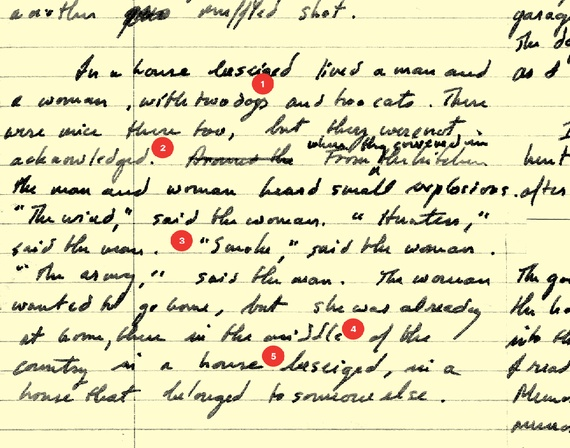 another muffled shot.
In a house besieged lived a man and
1
a woman, with two dogs and two cats. There
were mice there too, but they were not
where they cowered in
acknowledged. 2 Around the From the kitchen
the man and woman heard small explosions.
"The wind," said the woman. "Hunters,"
said the man. 3 "Smoke," said the woman.
"The army," said the man. The woman
wanted to go home, but she was already
at home, there in the middle 4 of the
country in a house 5 besieged, in a
house that belonged to someone else.
garag
The do
as I
I
hunt
after
The go
the ho
into th
I read